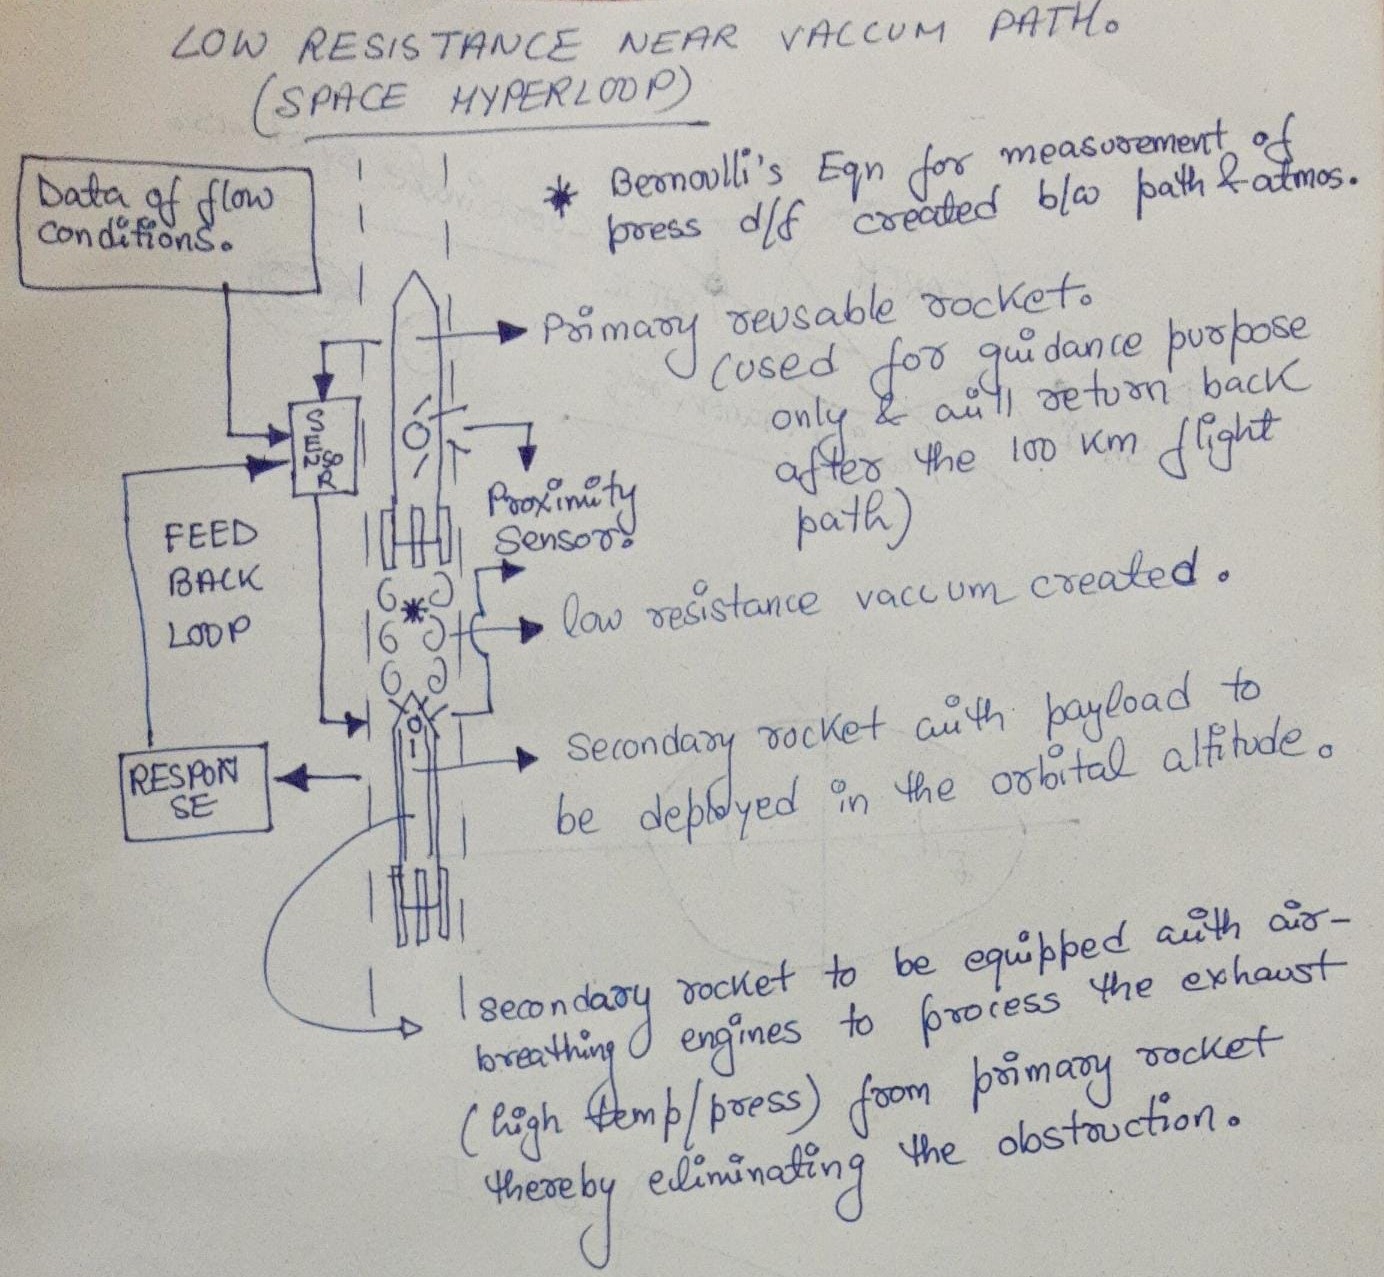 LOW RESISTANCE NEAR VACCUM PATH.
(SPACE HYPERLOOP)
Data of flow
conditions.
* Bernoulli's Eqn for measurement of
press d/f created b/w path & atmos.
Primary reusable rocket.
(used for guidance purpose
only & will return back
after the 100 Km flight
path)
SENSOR
Proximity
Sensor.
FEED
BACK
LOOP
*
low resistance vaccum created.
RESPON
SE
secondary rocket with payload to
be deployed in the orbital altitude.
secondary rocket to be equipped with air-
breathing engines to process the exhaust
(high temp/press) from primary rocket
thereby eliminating the obstruction.